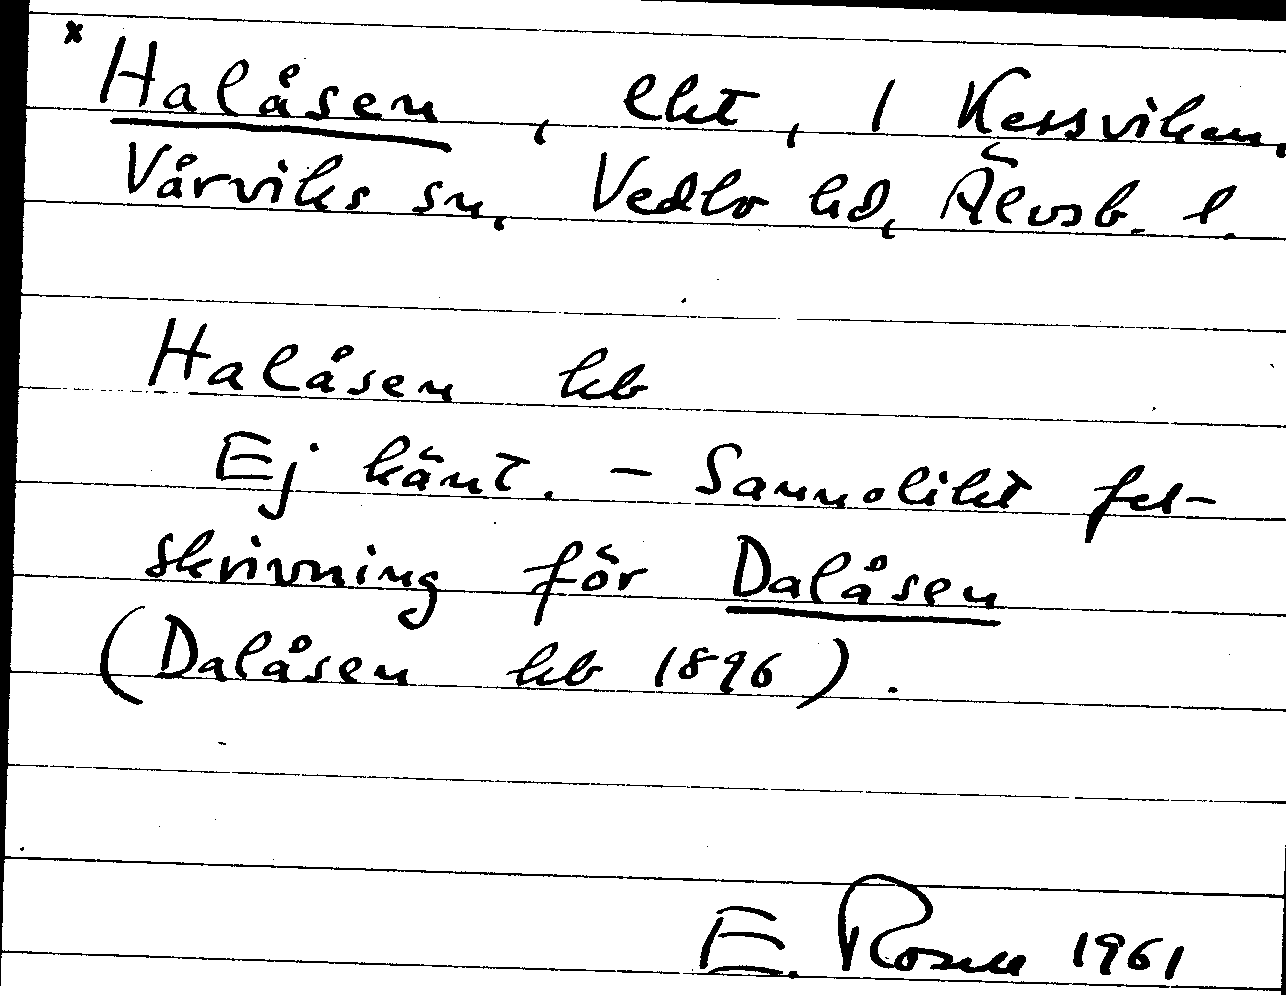 x Halåsen, lht, 1 Kessviken,
Vårviks sn, Vedbo hd, Älvsb. l.
Halåsen kb
Ej känt. - Sannolikt fel-
skrivning för Dalåsen
(Dalåsen kb 1896).
E. Rosell 1961